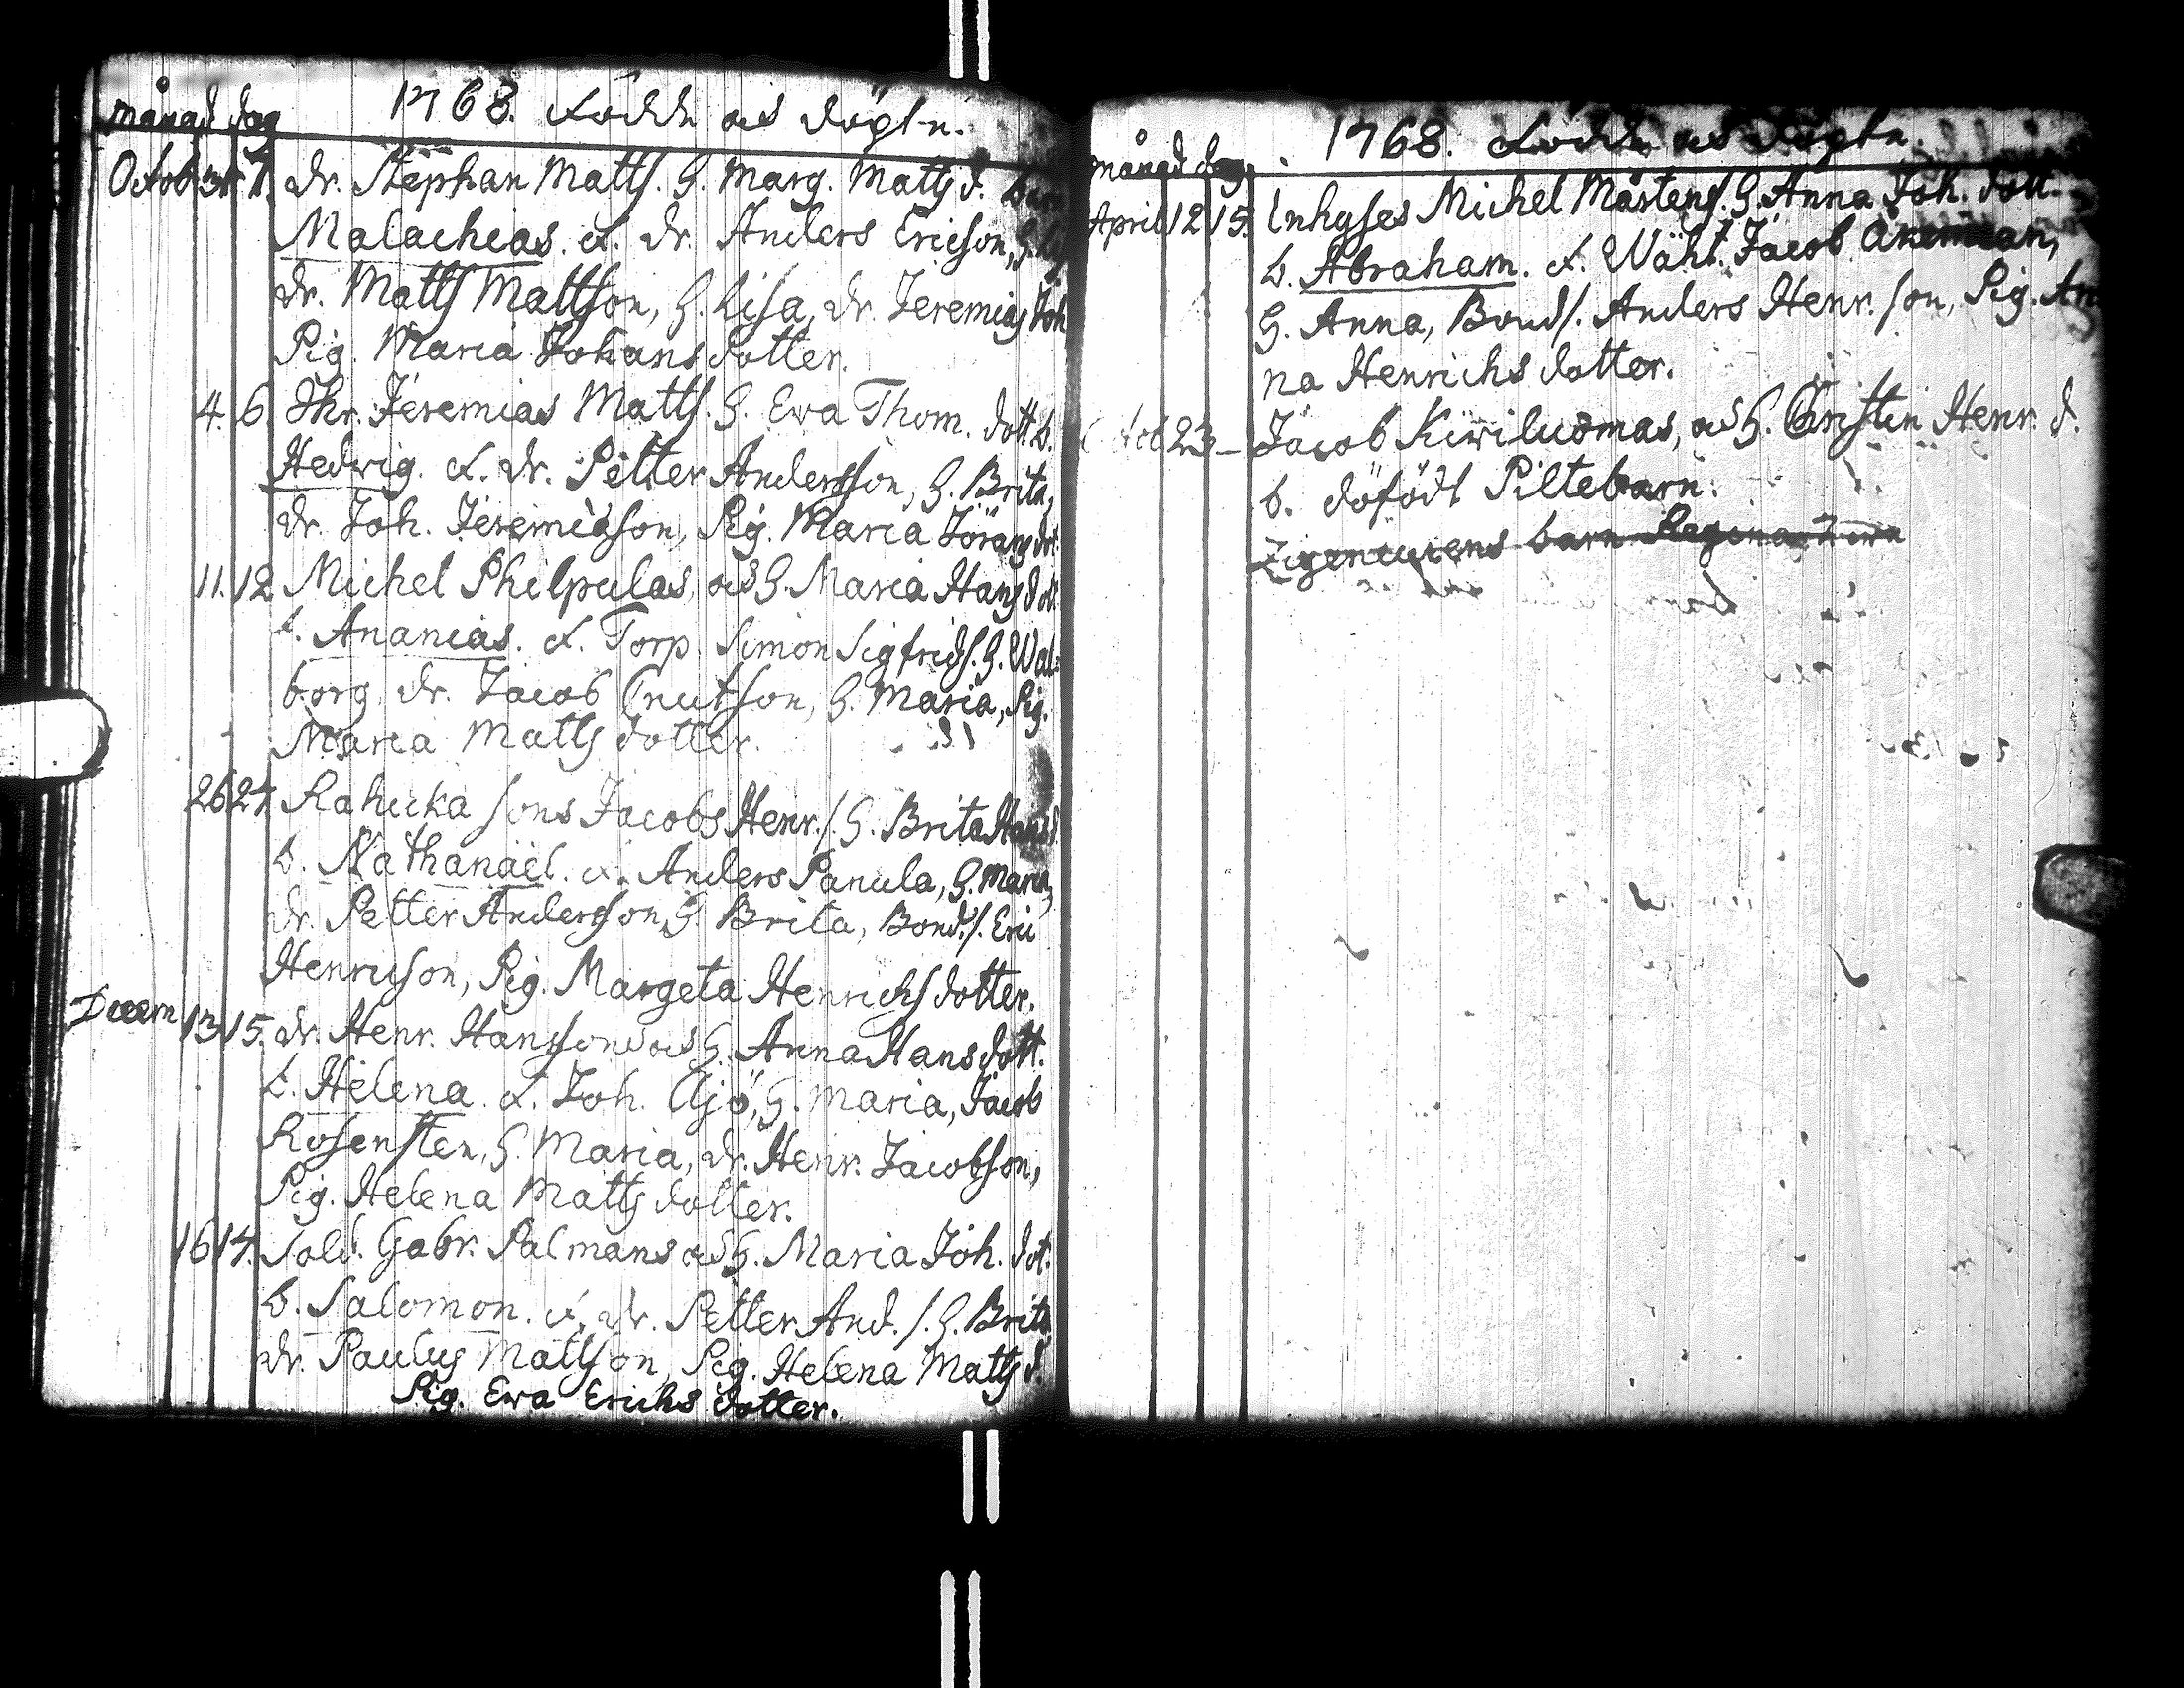 månad dag 1768. födde och döpte.
Octob 31. 7. dr. Stephan Matts. H. Marg. Matts d. barn
Malachias. f. dr. Anders Ericson, H.
dr. Matts Mattson, H. Lisa, dr. Jeremias Joh
Pig. Maria Johans dotter.
4. 6. Thr. Jeremias Matts. H. Ewa Thom. dott b.
Hedwig. f. dr. Petter Andersson, H. Brita,
dr. Joh. Jeremiæson, Pig. Maria Jörans dot.
11. 12 Michel Philpulas, och H. Maria Hans dot.
b. Ananias. f. Torp. Simon Sigfrids. H. Wal-
borg, dr. Jacob Cnutson, H. Maria, Pig.
Maria Matts dotter.
26 27 Rahuka sons Jacobs Henr. s. H. Brita Hans d.
b. Nathanaël. f. Anders Panula, H. Maria,
dr. Petter Andersson, H. Brita, Bond. s. Eric
Henricson, Pig. Margeta Henrichs dotter.
Decem 13 15. dr. Henr. Hanssons och H. Anna Hans dott.
b. Helena. f. Joh. Ajö, H. Maria, Jacob
Rosensten, H. Maria, dr. Henr. Jacobson,
Pig. Helena Matts dotter.
16 17. Sold. Gabr. Palmans och H. Maria Joh. dot.
b. Salomon. f. dr. Petter And. s. H. Brita
dr. Paulus Mattson, Pig. Helena Matts d.
Pig. Ewa Erichs dotter.
månad dag. 1768. födde och döpte.
April 12 15. Inhyses Michel Mårtens. H. Anna Joh. dott.
b. Abraham. f. Wähl. Jacob Åkerman,
H. Anna, Bond s. Anders Henr. son, Pig. An
na Henrichs dotter.
23 – Jacob Kiwiluomas, och H. Christin Henr. d.
b. döfödt Piltebarn.
barn Regina